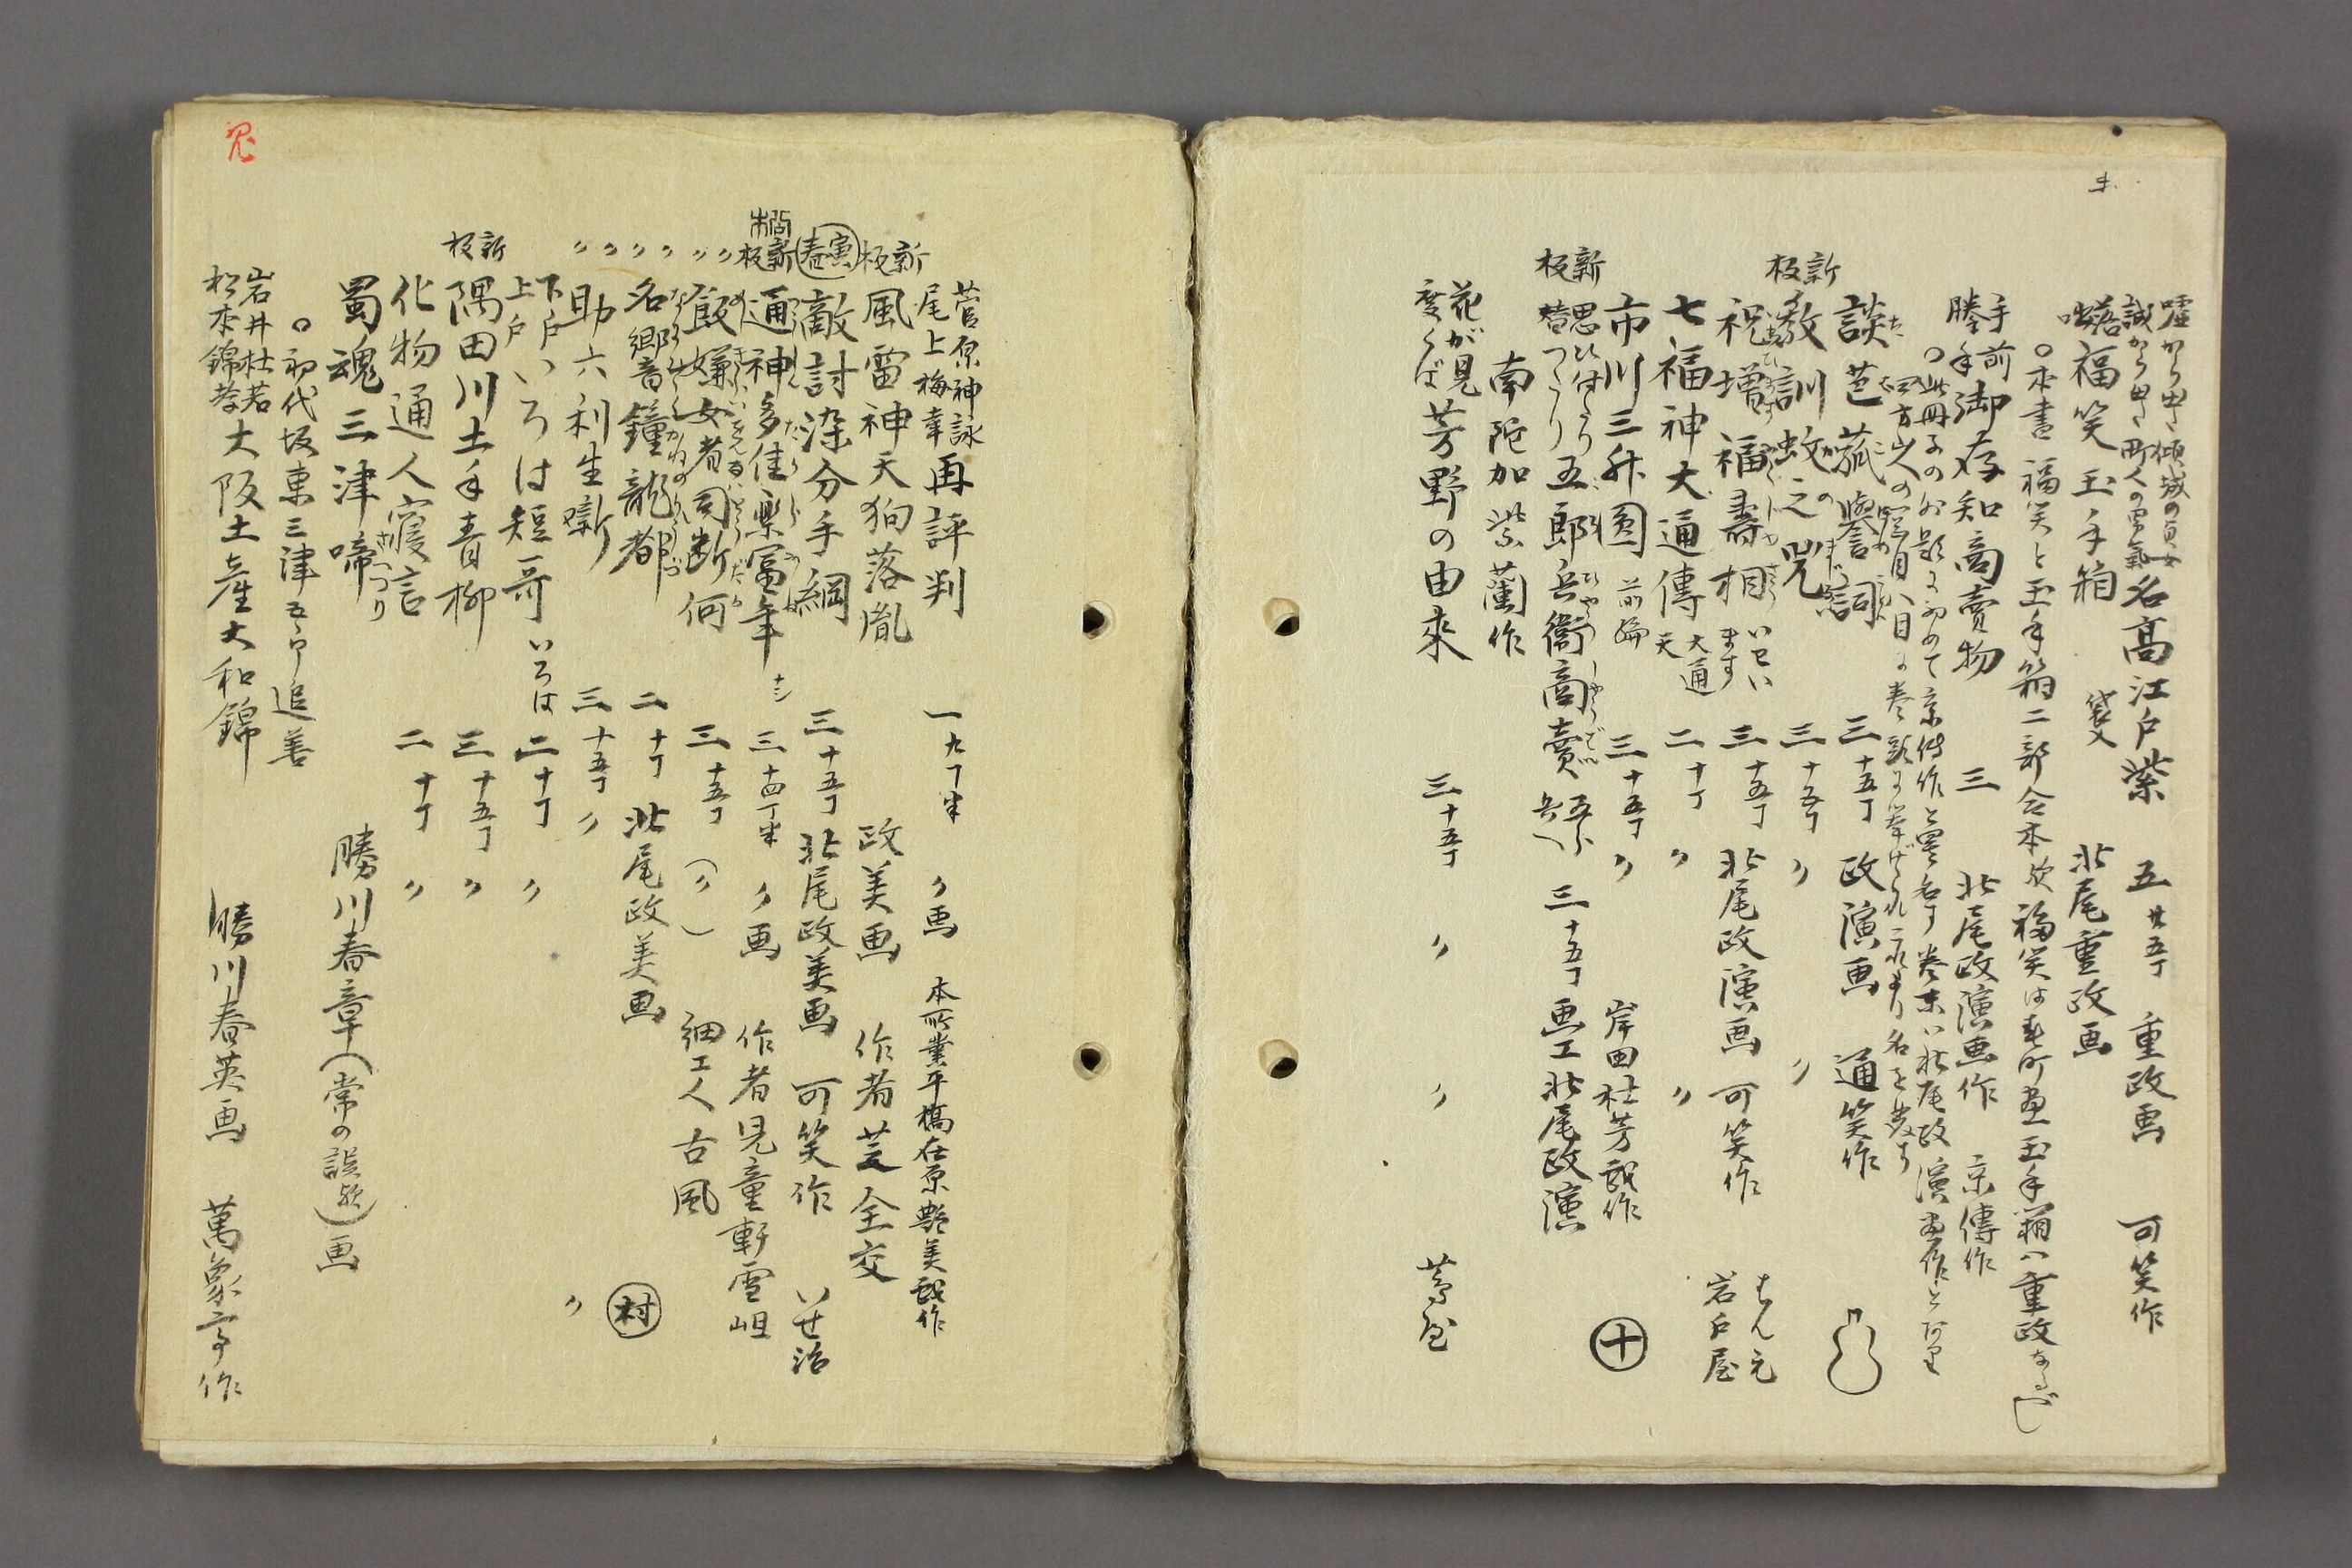 嘘から出た傾城の貞女
誠から出た町人の 名高江戸紫 五 廿五丁 重政画 可笑作
落咄 福笑玉手箱 袋入 北尾重政画
〇本書福笑と玉手箱二部合本歟福笑は春町画玉手箱ハ重政なるべし
手前勝手 御存知商売物 三 北尾政演画作 京傳作
〇此冊子の 初めて京傳作と署名す巻末ハ北尾政演画作とあり
四方山人の 岡目八目に巻頭に挙げられ これより名を
談芭菰譽詞 三 十五丁 政演画 通笑作
新板 教訓蚊之咒 三 十五丁 〃 〃
祝増福壽相 いせい ます 三 十五丁 北尾政演画 可笑作 はん元 岩戸屋
七福神大通傳 大通天 二 十丁 〃 〃
市川三升圓 前編 三 十五丁 〃 岸田杜芳戯作 十
新板 思替 五郎兵衞商賣 三 十五丁 画工北尾政演
南陀加紫蘭作
花が見度くば 芳野の由來 三 十五丁 〃 〃 蔦屋
菅原神詠
尾上梅幸 再評判 一 九丁半 〃画 本所業平橋在原艶美戯作
新板 風雷神天狗落胤 政美画 作者芝全交
寅春 敵討染分手綱 三 十五丁 北尾政美画 可笑作 いせ治
新板 通神多佳樂冨年 三 十四丁半 〃画 作者児童軒雪岨
〃 飯嫌女者司断何 三 十五丁 (〃) 細工人古風
〃 名郷音鐘龍都 二 十丁 北尾政美画 村
〃 助六利生噺 三 十五丁 〃 〃
〃 下戸上戸 いろは短哥 いろは 二 十丁 〃
新板 隅田川土手青柳 三 十五丁 〃
化物通人寝言 二 十丁 〃
蜀魂三津啼 勝川春章(常の誤歟)画
〇初代坂東三津五郎追善
岩井杜若
松本錦考 大阪土産大和錦 勝川春英画 萬象亭作